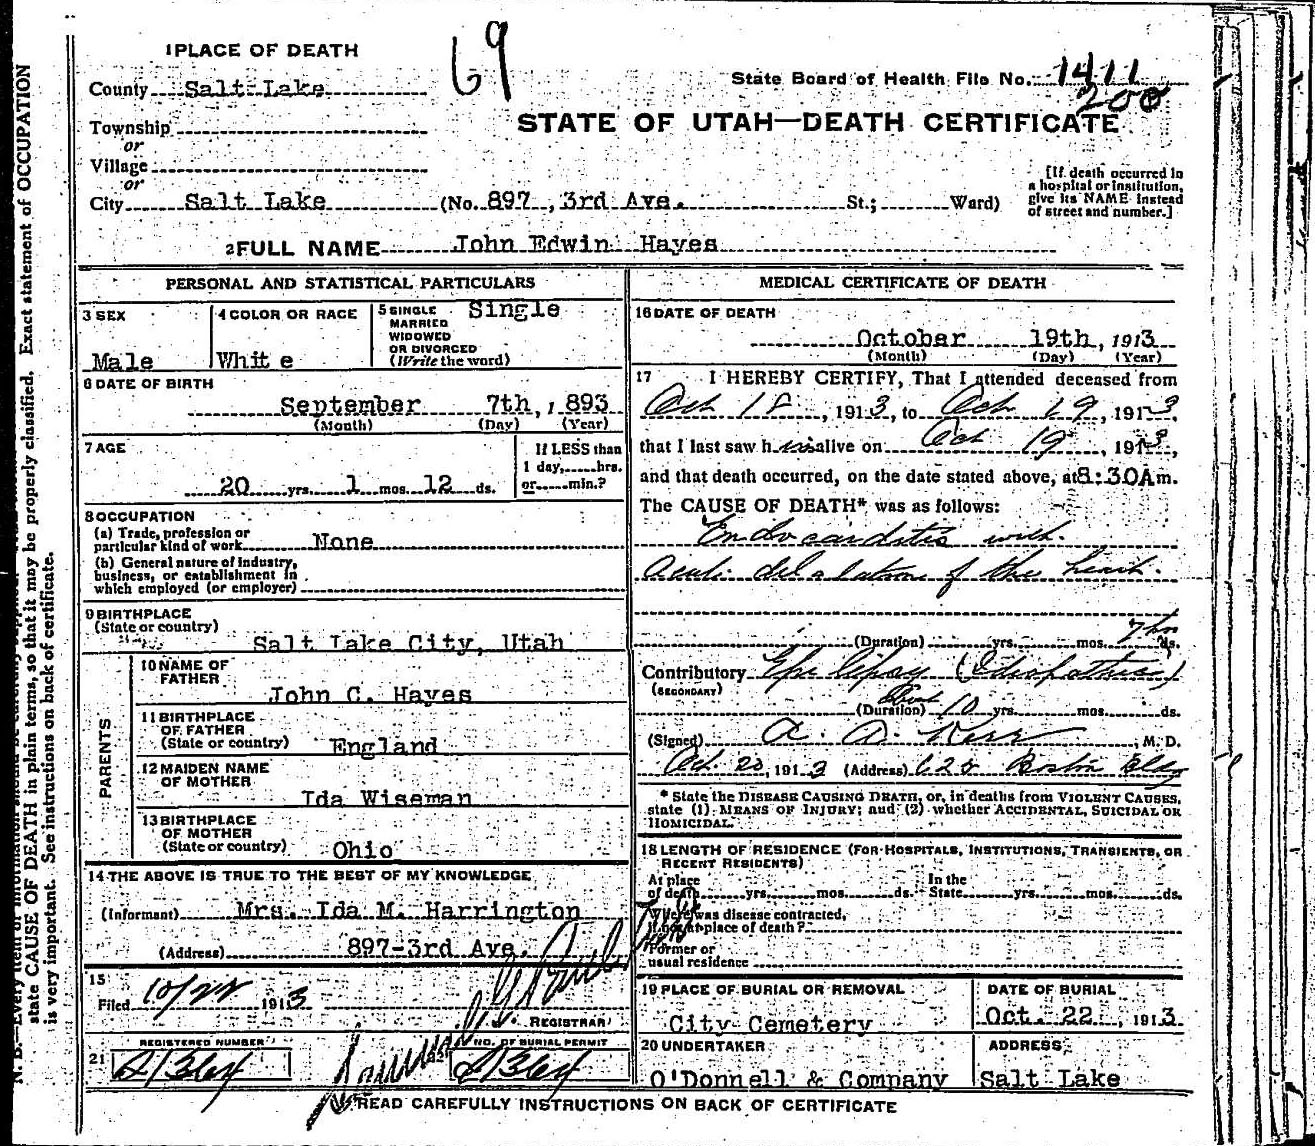 1 PLACE OF DEATH
69
County Salt Lake
State Board of Health File No. 1411
200
Township
or
Village
or
STATE OF UTAH—DEATH CERTIFICATE
City Salt Lake (No. 897, 3rd Ave. St.; Ward)
[If death occurred in
a hospital or institution,
give its NAME instead
of street and number.]
2 FULL NAME John Edwin Hayes
PERSONAL AND STATISTICAL PARTICULARS
3 SEX
Male
4 COLOR OR RACE
White
5 SINGLE
MARRIED
WIDOWED
OR DIVORCED
(Write the word)
Single
6 DATE OF BIRTH
September 7th, 1893
(Month) (Day) (Year)
7 AGE
20 yrs. 1 mos. 12 ds.
If LESS than
1 day, hrs.
or min.?
8 OCCUPATION
(a) Trade, profession or
particular kind of work None
(b) General nature of industry,
business, or establishment in
which employed (or employer)
9 BIRTHPLACE
(State or country)
Salt Lake City, Utah
PARENTS
10 NAME OF
FATHER
John C. Hayes
11 BIRTHPLACE
OF FATHER
(State or country) England
12 MAIDEN NAME
OF MOTHER
Ida Wiseman
13 BIRTHPLACE
OF MOTHER
(State or country) Ohio
14 THE ABOVE IS TRUE TO THE BEST OF MY KNOWLEDGE
(Informant) Mrs. Ida M. Harrington
(Address) 897-3rd Ave.
15
Filed 10/22 1913
REGISTRAR
REGISTERED NUMBER
21
NO. OF BURIAL PERMIT
MEDICAL CERTIFICATE OF DEATH
16 DATE OF DEATH
October 19th, 1913
(Month) (Day) (Year)
17 I HEREBY CERTIFY, That I attended deceased from
Oct 18, 1913, to Oct 19, 1913
that I last saw him alive on Oct 19, 1913,
and that death occurred, on the date stated above, at 8:30Am.
The CAUSE OF DEATH* was as follows:
Endocarditis with
Acute dilalation of the heart
(Duration) yrs. mos. 7 hrs ds.
Contributory Epilepsy (Idiopathic)
(SECONDARY)
(Duration) 10 yrs. mos. ds.
(Signed) A. A. Kerr, M. D.
Oct. 20, 1913 (Address) 620 Boston Bldg
* State the DISEASE CAUSING DEATH, or, in deaths from VIOLENT CAUSES,
state (1) MEANS OF INJURY; and (2) whether ACCIDENTAL, SUICIDAL OR
HOMICIDAL.
18 LENGTH OF RESIDENCE (FOR HOSPITALS, INSTITUTIONS, TRANSIENTS, OR
RECENT RESIDENTS)
At place In the
of death yrs. mos. ds. State yrs. mos. ds.
Where was disease contracted,
if not at place of death?
Former or
usual residence
19 PLACE OF BURIAL OR REMOVAL
City Cemetery
DATE OF BURIAL
Oct. 22, 1913
20 UNDERTAKER
O'Donnell & Company
ADDRESS
Salt Lake
READ CAREFULLY INSTRUCTIONS ON BACK OF CERTIFICATE
state CAUSE OF DEATH in plain terms, so that it may be properly classified. Exact statement of OCCUPATION
is very important. See instructions on back of certificate.